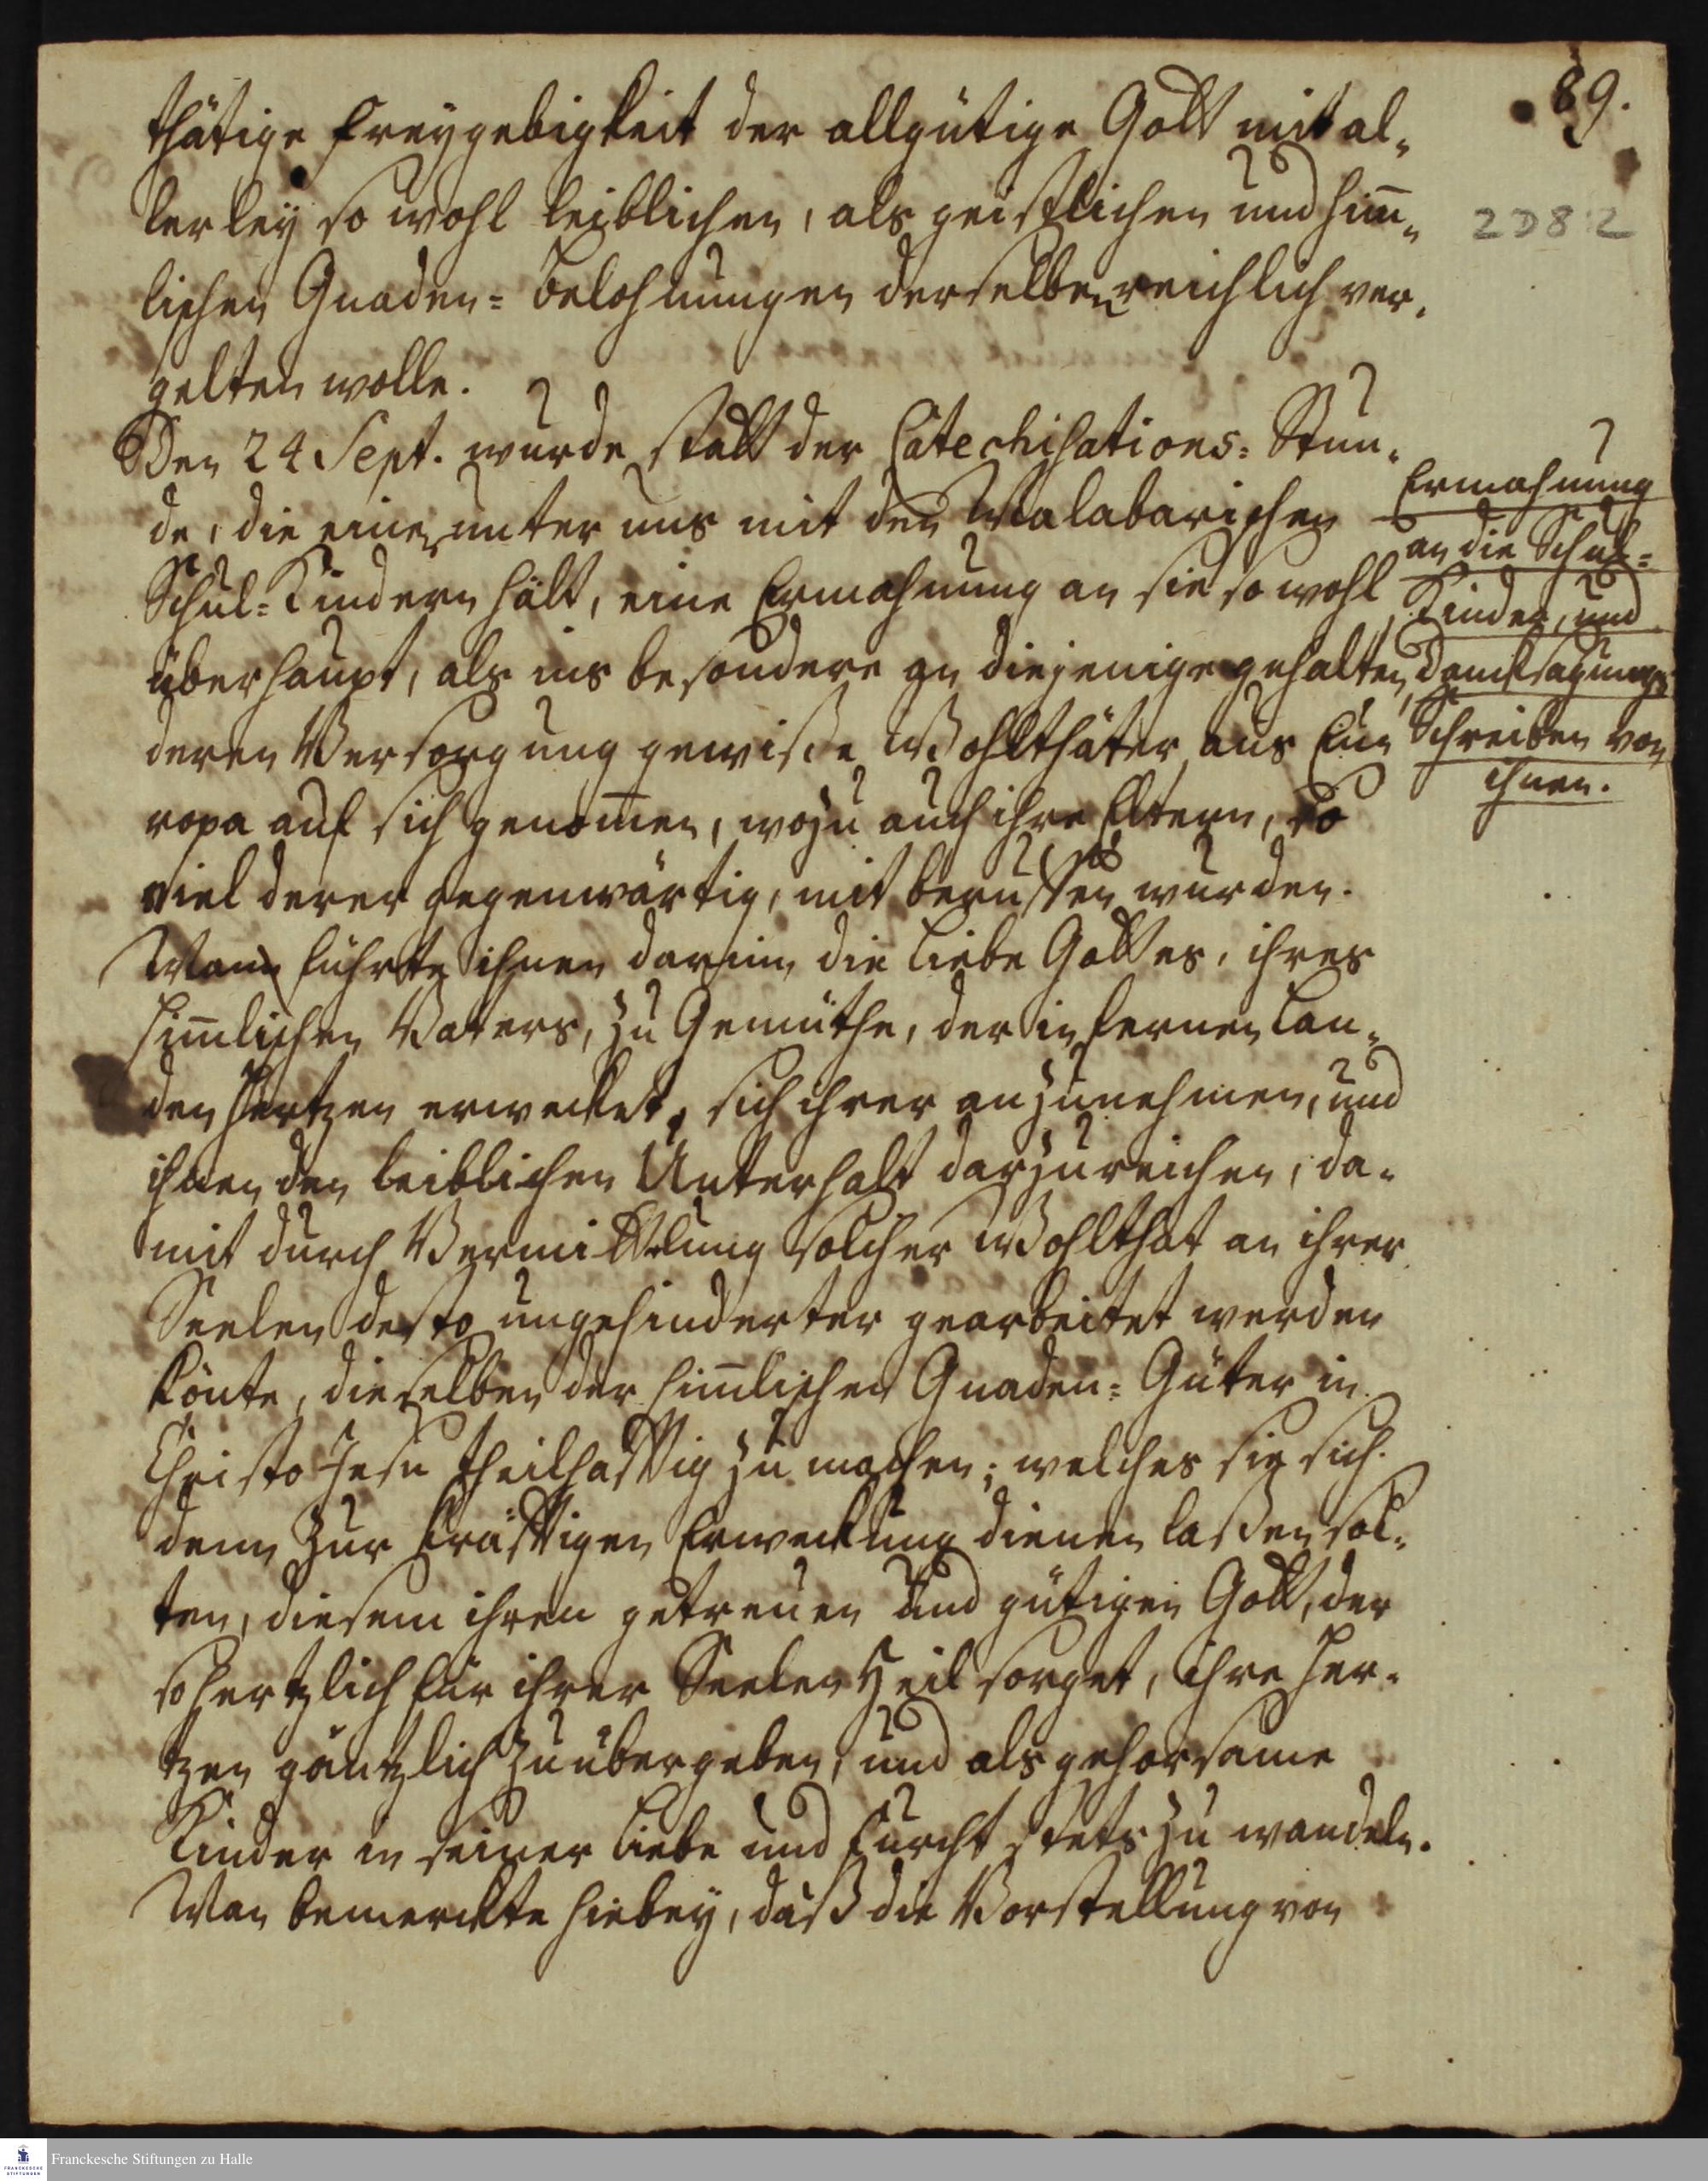 89.
2D82
thätige Freygebigkeit der allgütige Gott mit al-
lerley so wohl leiblichen, als geistlichen und him̄-
lischen Gnaden-Belohnungen derselben reichlich ver-
gelten wolle.
Den 24 Sept. wurde statt der Catechisations-Stun-
de, die einer unter uns mit den Malabarischen
Schul-Kindern hält, eine Ermahnung an sie so wohl
überhaupt, als ins besondere an diejenige gehalten,
deren Versorgung gewiße Wohlthäter aus Eu-
ropa auf sich genom̄en, wozu auch ihre Eltern, so
viel derer gegenwärtig, mit beruffen wurden.
Man führte ihnen darinn die Liebe Gottes, ihres
him̄lischen Vaters, zu Gemüthe, der in fernen Lan-
den Hertzen erwecket, sich ihrer anzunehmen, und
ihnen den leiblichen Unterhalt darzureichen, da-
mit durch Vermittelung solcher Wohlthat an ihrer
Seelen desto ungehinderter gearbeitet werden
könte, dieselben der him̄lischen Gnaden-Güter in
Christo Jesu theilhafftig zu machen; welches sie sich
denn zur kräfftigen Erweckung dienen laßen sol-
ten, diesem ihren getreuen und gütigen Gott, der
so hertzlich für ihrer Seelen Heil sorget, ihre Her-
tzen gäntzlich zu übergeben, und als gehorsame
Kinder in seiner Liebe und Furcht stets zu wandeln.
Man bemerckte hiebey, daß die Vorstellung von
Ermahnung
an die Schul-
Kinder, und
Dancksagungs-
Schreiben von
ihnen.
FRANCKESCHE
STIFTUNGEN
Franckesche Stiftungen zu Halle